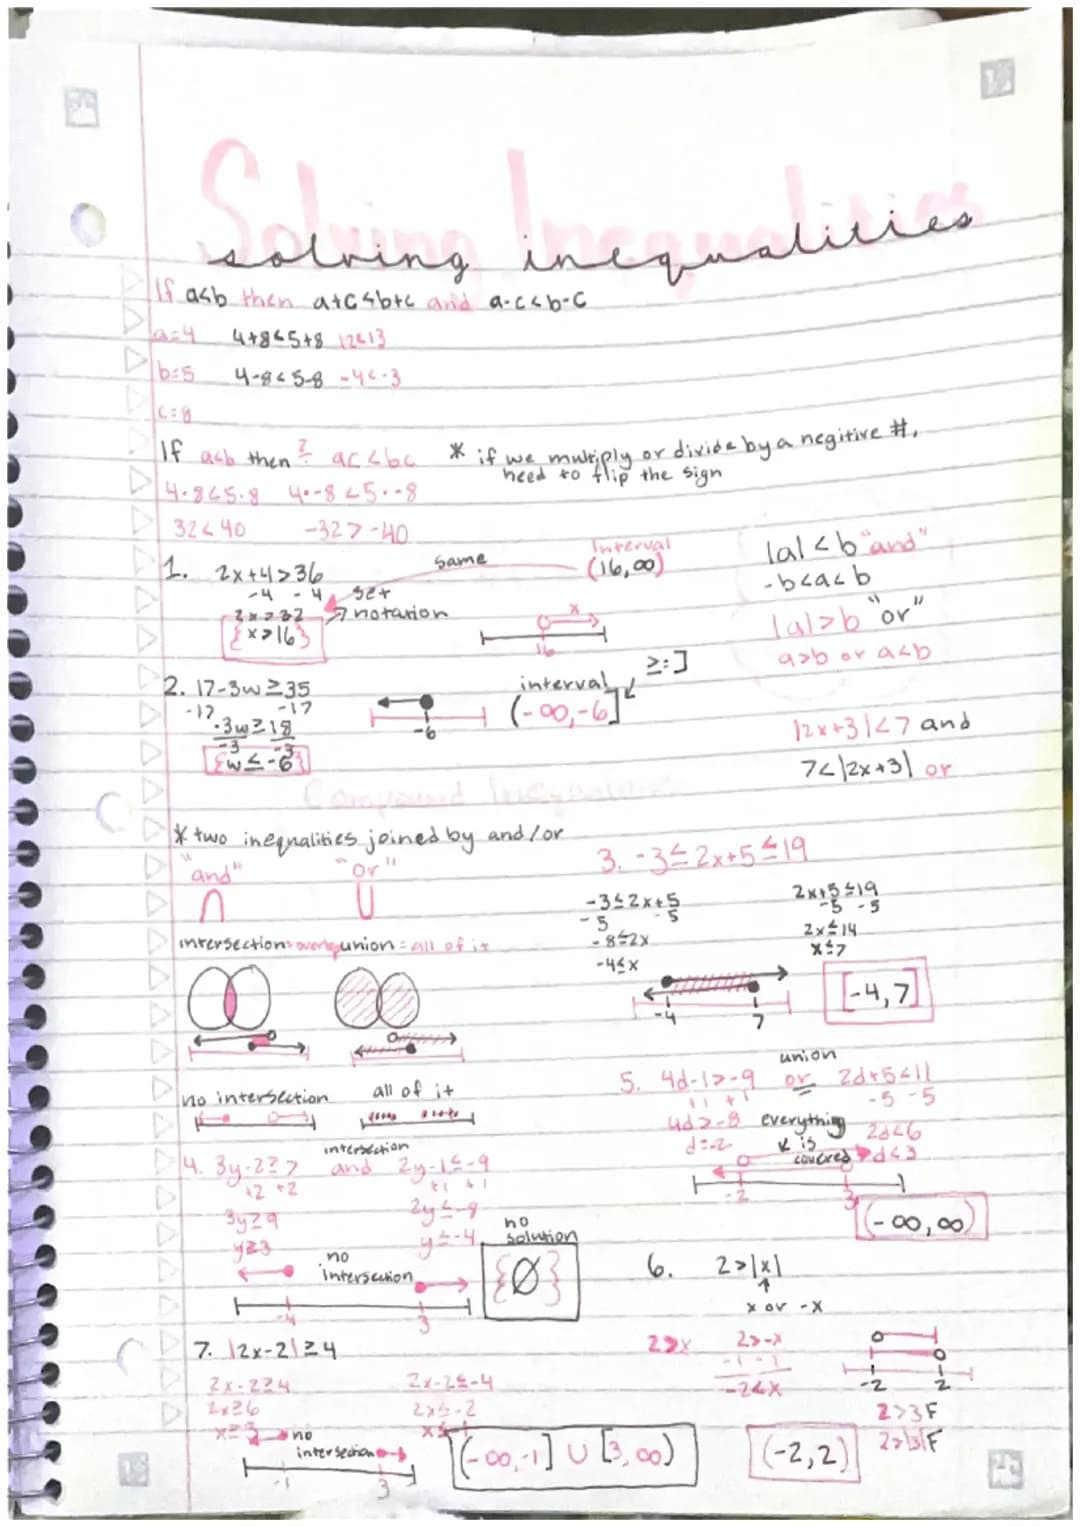 Solving Inequalities
solving inequalities
If a<b then a+c<b+c and a-c<b-c
a=4 4+8<5+8 12<13
b=5 4-8<5-8 -4<-3
c=8
If a<b then ? ac<bc * if we multiply or divide by a negitive #,
need to flip the sign
4·8<5·8 4·-8<5·-8
32<40 -32>-40
1. 2x+4>36
-4 -4
2x>32
{x>16}
same
set
notation
Interval
(16,∞)
x
16
|a|<b "and"
-b<a<b
|a|>b "or"
a>b or a<b
2. 17-3w≥35
-17 -17
-3w≥18
-3 -3
{w≤-6}
-6
interval
(-∞,-6]
≥:]
|2x+3|<7 and
7<|2x+3| or
Compound Inequalities
* two inequalities joined by and/or
"and" "or"
∩ U
intersection=overlap union=all of it
no intersection all of it
3. -3≤2x+5≤19
-3≤2x+5 2x+5≤19
-5 -5 -5 -5
-8≤2x 2x≤14
-4≤x x≤7
-4 7
[-4,7]
4. 3y-2≥7 and 2y-1≤-9
intersection
+2 +2 +1 +1
3y≥9 2y≤-8
y≥3 y≤-4
no
intersection
-4 3
no
solution
{Ø}
union
5. 4d-1>-9 or 2d+5<11
+1 +1 -5 -5
4d>-8 2d<6
d=-2 d<3
everything
is
covered
-2 3
(-∞,∞)
6. 2>|x|
x or -x
2>x 2>-x
-1 -1
-2<x
-2 2
2>3 F
2>|3| F
(-2,2)
7. |2x-2|≥4
2x-2≥4 2x-2≤-4
2x≥6 2x≤-2
x≥3
no
intersection
-1 3
(-∞,-1] U [3,∞)